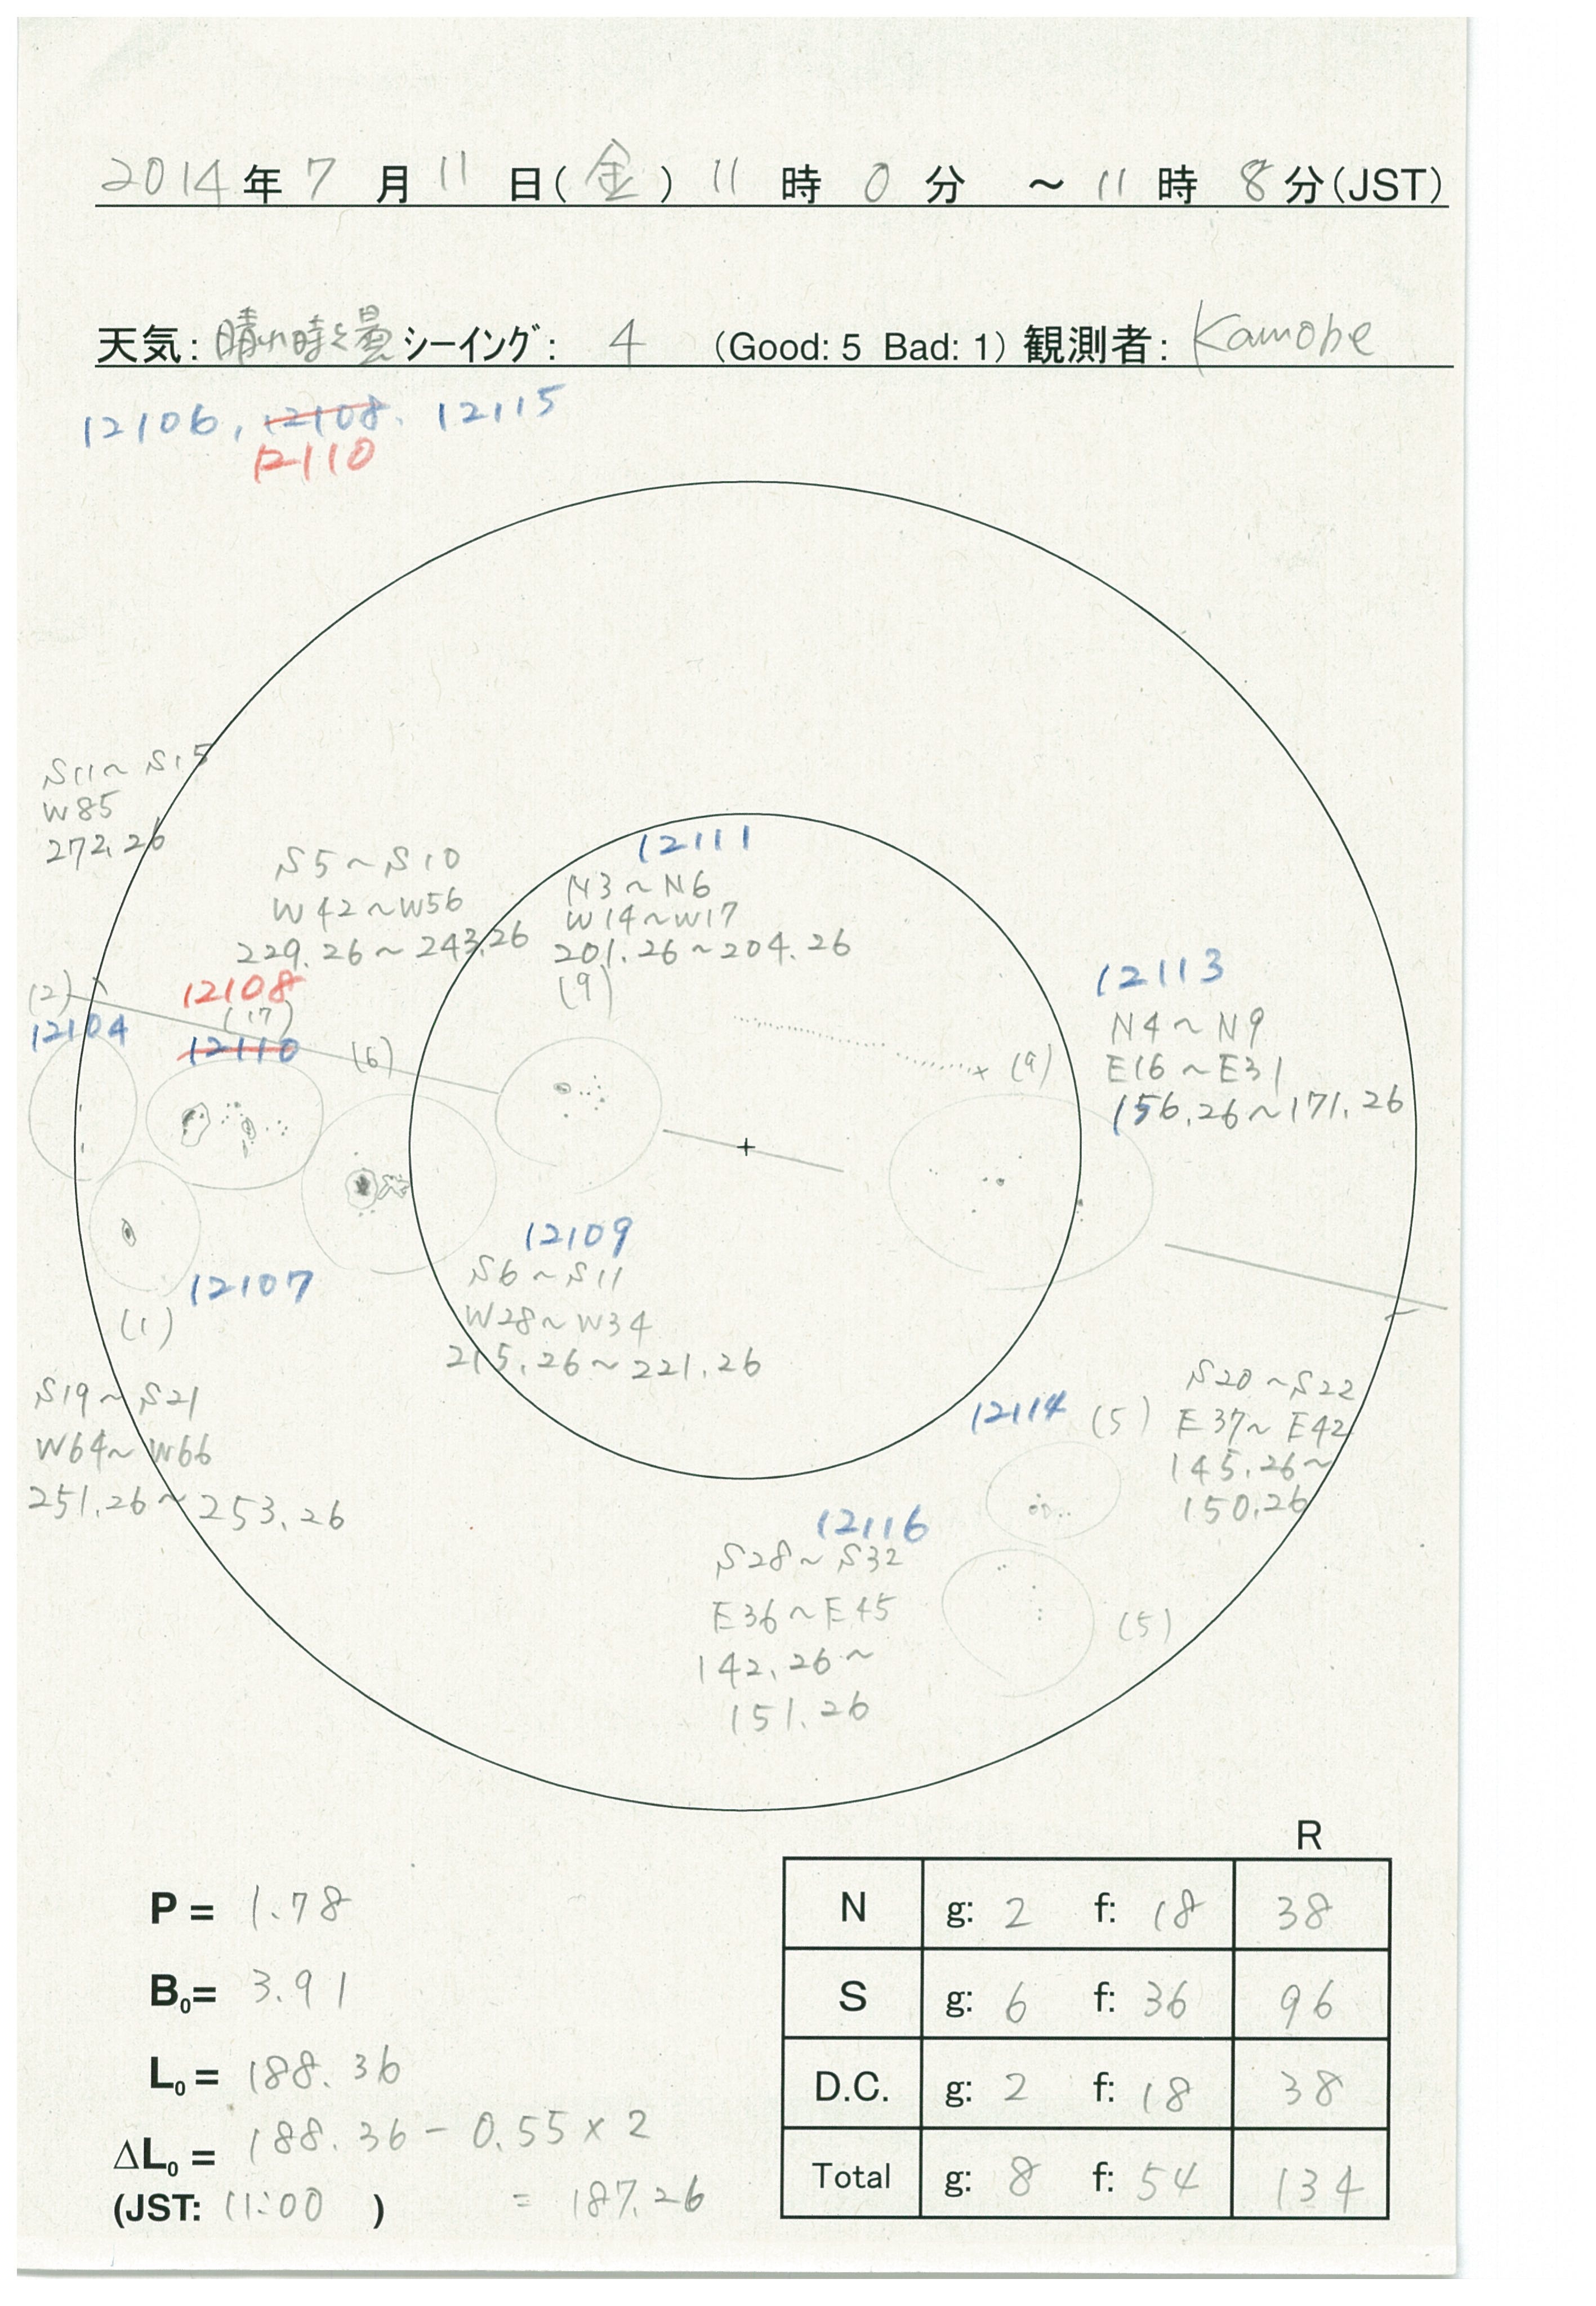 2014年 7月 11日(金) 11時 0分 ～ 11時 8分(JST)
天気: 晴れ時々曇 シーイング: 4 (Good: 5 Bad: 1) 観測者: Kamobe
12106, 12108. 12115
12110
S11～S15
W85
272.26
S5～S10
W42～W56
229.26～243.26
12111
N3～N6
W14～W17
201.26～204.26
(9)
(2)
12104
12108
(17)
12110
(6)
(9)
12113
N4～N9
E16～E31
156.26～171.26
12109
S6～S11
W28～W34
215.26～221.26
12107
(1)
S19～S21
W64～W66
251.26～253.26
12114 (5)
S20～S22
E37～E42
145.26～
150.26
12116
S28～S32
E36～E45
142.26～
151.26
(5)
P = 1.78
B0= 3.91
L0 = 188.36
ΔL0 = 188.36 - 0.55×2
(JST: 11:00 ) = 187.26
R
N g: 2 f: 18 38
S g: 6 f: 36 96
D.C. g: 2 f: 18 38
Total g: 8 f: 54 134